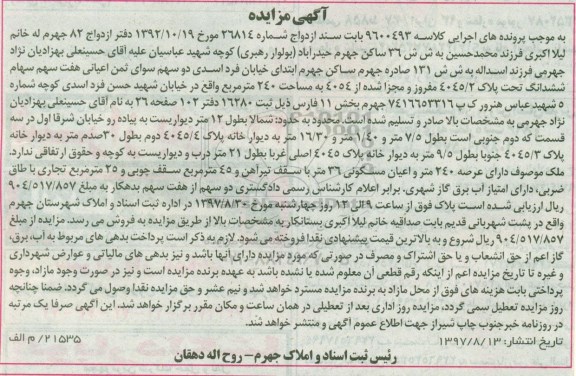 آگهی مزایده
به موجب پرونده های اجرایی کلاسه ۹۶۰۰۴۹۳ بابت سند ازدواج شماره ۲۶۸۱۴ مورخ ۱۳۹۲/۱۰/۱۹ دفتر ازدواج ۸۲ جهرم له خانم
لیلا اکبری فرزند محمدحسین به ش ش ۳۶ ساکن جهرم حیدرآباد (بولوار رهبری) کوچه شهید عباسیان علیه آقای حسینعلی بهزادیان نژاد
جهرمی فرزند اسداله به ش ش ۱۳۱ صادره جهرم ساکن جهرم ابتدای خیابان فرد اسدی دو سهم سوای ثمن اعیانی هفت سهم سهام
ششدانگ تحت پلاک ۴۰۴۵/۲ مفروز و مجزا شده از ۴۰۵۴ به مساحت ۲۴۰ مترمربع واقع در خیابان شهید حسن فرد اسدی کوچه شماره
۵ شهید عباس هنرور ک پ ۷۴۱۶۶۵۳۳۱۶ جهرم بخش ۱۱ فارس ذیل ثبت ۱۶۳۸۰ دفتر ۱۰۲ صفحه ۲۶ به نام آقای حسینعلی بهزادیان
نژاد جهرمی به مشخصات بالا صادر و تسلیم شده است. محدود به حدود: شمالا بطول ۱۲ متر دیواریست به پیاده رو خیابان شرقا اول در سه
قسمت که دوم جنوبی است بطول ۷/۵ متر و ۱/۴۰ متر و ۱۶/۳۰ متر به دیوار خانه پلاک ۴۰۴۵/۴ دوم بطول ۳۰صدم متر به دیوار خانه
پلاک ۴۰۴۵/۳ جنوبا بطول ۹/۵ متر به دیوار خانه پلاک ۴۰۴۵ اصلی غربا بطول ۲۱ متر درب و دیواریست به کوچه و حقوق ارتفاقی ندارد.
ملک موصوف دارای عرصه ۲۴۰ متر و اعیان مسکونی ۳۶ متر با سقف تیرآهن و ۴۵ مترمربع سقف چوبی و ۲۵ مترمربع تجاری با طاق
ضربی، دارای امتیاز آب برق گاز شهری، برابر اعلام کارشناس رسمی دادگستری دو سهم از هفت سهم بدهکار به مبلغ ۹۰۴/۵۱۷/۸۵۷
ریال ارزیابی شده است پلاک فوق از ساعت ۹ الی ۱۲ روز چهارشنبه مورخ ۱۳۹۷/۸/۳۰ در اداره ثبت اسناد و املاک شهرستان جهرم
واقع در پشت شهربانی قدیم بابت صداقیه خانم لیلا اکبری بستانکار به مشخصات بالا از طریق مزایده به فروش می رسد. مزایده از مبلغ
۹۰۴/۵۱۷/۸۵۷ ریال شروع و به بالاترین قیمت پیشنهادی نقدا فروخته می شود. لازم به ذکر است پرداخت بدهی های مربوط به آب، برق،
گاز اعم از حق انشعاب و یا حق اشتراک و مصرف در صورتی که مورد مزایده دارای آنها باشد و نیز بدهی های مالیاتی و عوارض شهرداری
و غیره تا تاریخ مزایده اعم از اینکه رقم قطعی آن معلوم شده یا نشده باشد به عهده برنده مزایده است و نیز در صورت وجود مازاد، وجوه
پرداختی بابت هزینه های فوق از محل مازاد به برنده مزایده مسترد خواهد شد و نیم عشر و حق مزایده نقدا وصول می گردد، ضمنا چنانچه
روز مزایده تعطیل رسمی گردد، مزایده روز اداری بعد از تعطیلی در همان ساعت و مکان مقرر برگزار خواهد شد، این آگهی صرفا یک مرتبه
در روزنامه خبرجنوب چاپ شیراز جهت اطلاع عموم آگهی و منتشر خواهد شد.
تاریخ انتشار: ۱۳۹۷/۸/۱۳ ۲۱۵۳۵/م الف
رئیس ثبت اسناد و املاک جهرم- روح اله دهقان